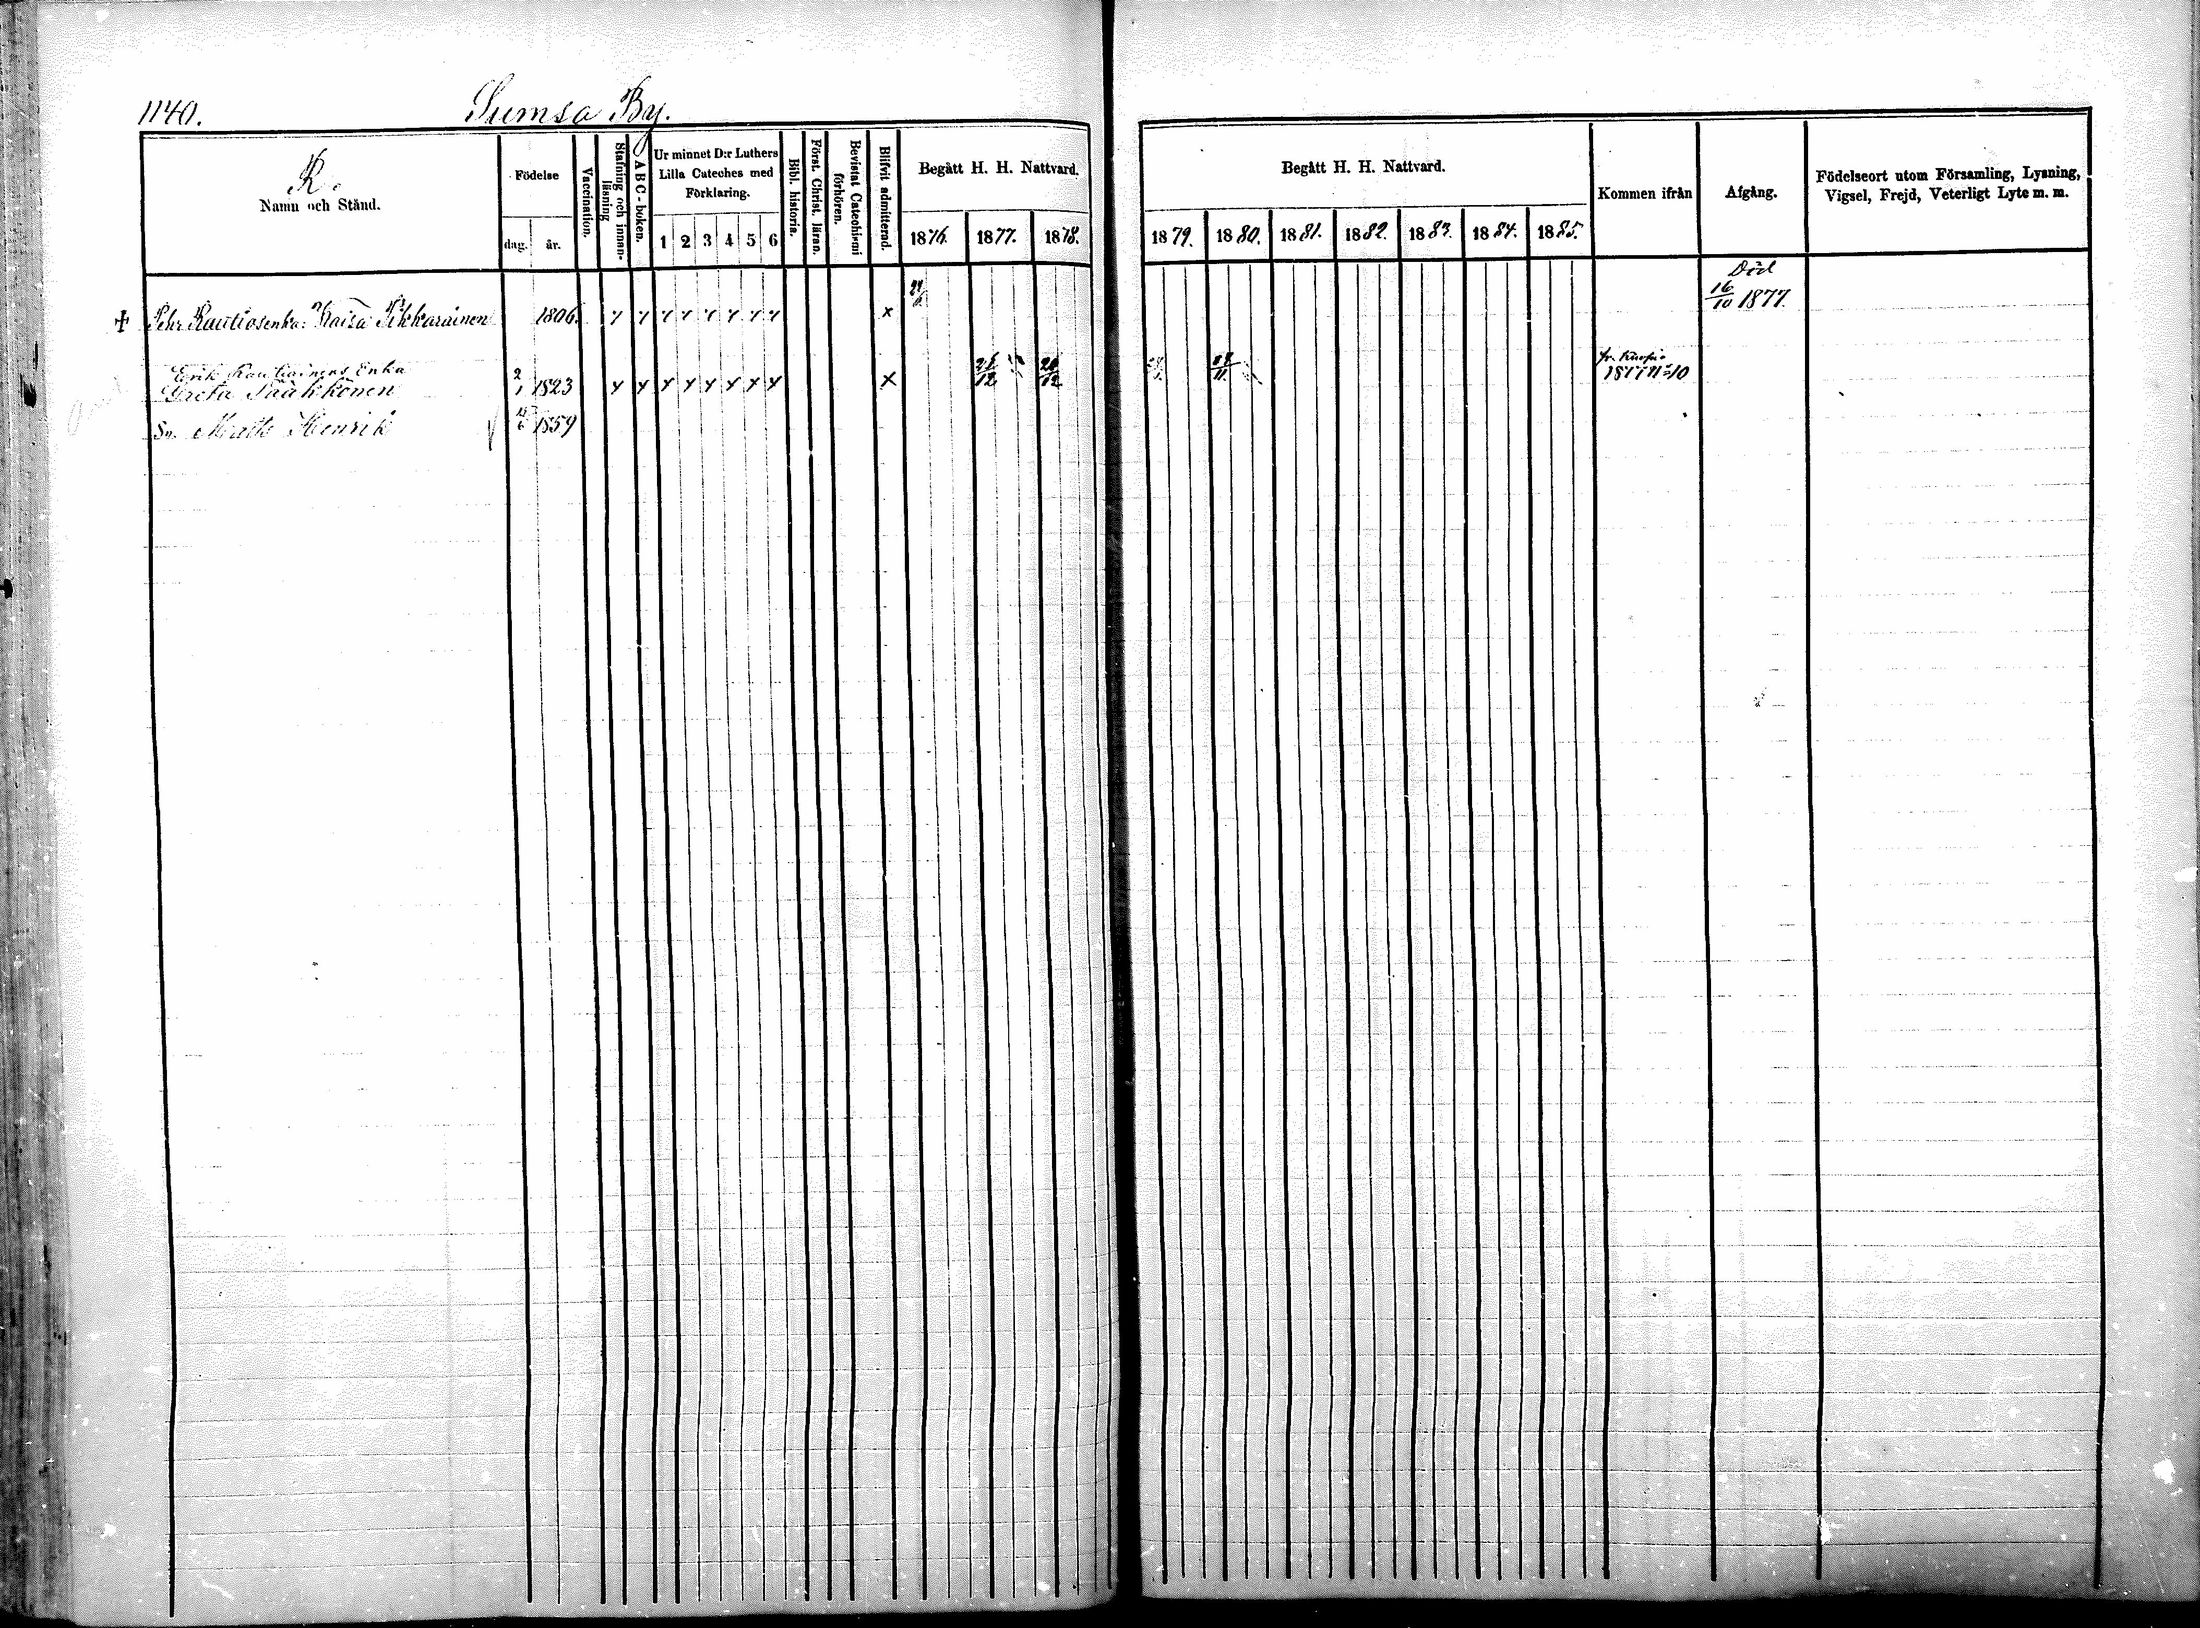 1140.
Sumsa By.
R.
Namn och Stånd.
Födelse
dag.
år.
Vaccination.
Stafning och innan-
läsning
A B C - boken.
Ur minnet D:r Luthers
Lilla Cateches med
Förklaring.
1 2 3 4 5 6
Bibl. historia.
Först. Christ. läran.
Bevistat Catechismi
förhören.
Blifvit admitterad.
Begått H. H. Nattvard.
1876. 1877. 1878.
Begått H. H. Nattvard.
1879. 1880. 1881. 1882. 1883. 1884. 1885.
Kommen ifrån
Afgång.
Födelseort utom Församling, Lysning,
Vigsel, Frejd, Veterligt Lyte m. m.
Död
16/10 1877.
Pehr Rautiosenka: Kaisa Pikkarainen 1806.
Erik Rautiainens Enka
Greta Pääkkönen 2/1 1823
28/11
1877 N:o 10
Sn. Matts Henrik 1859